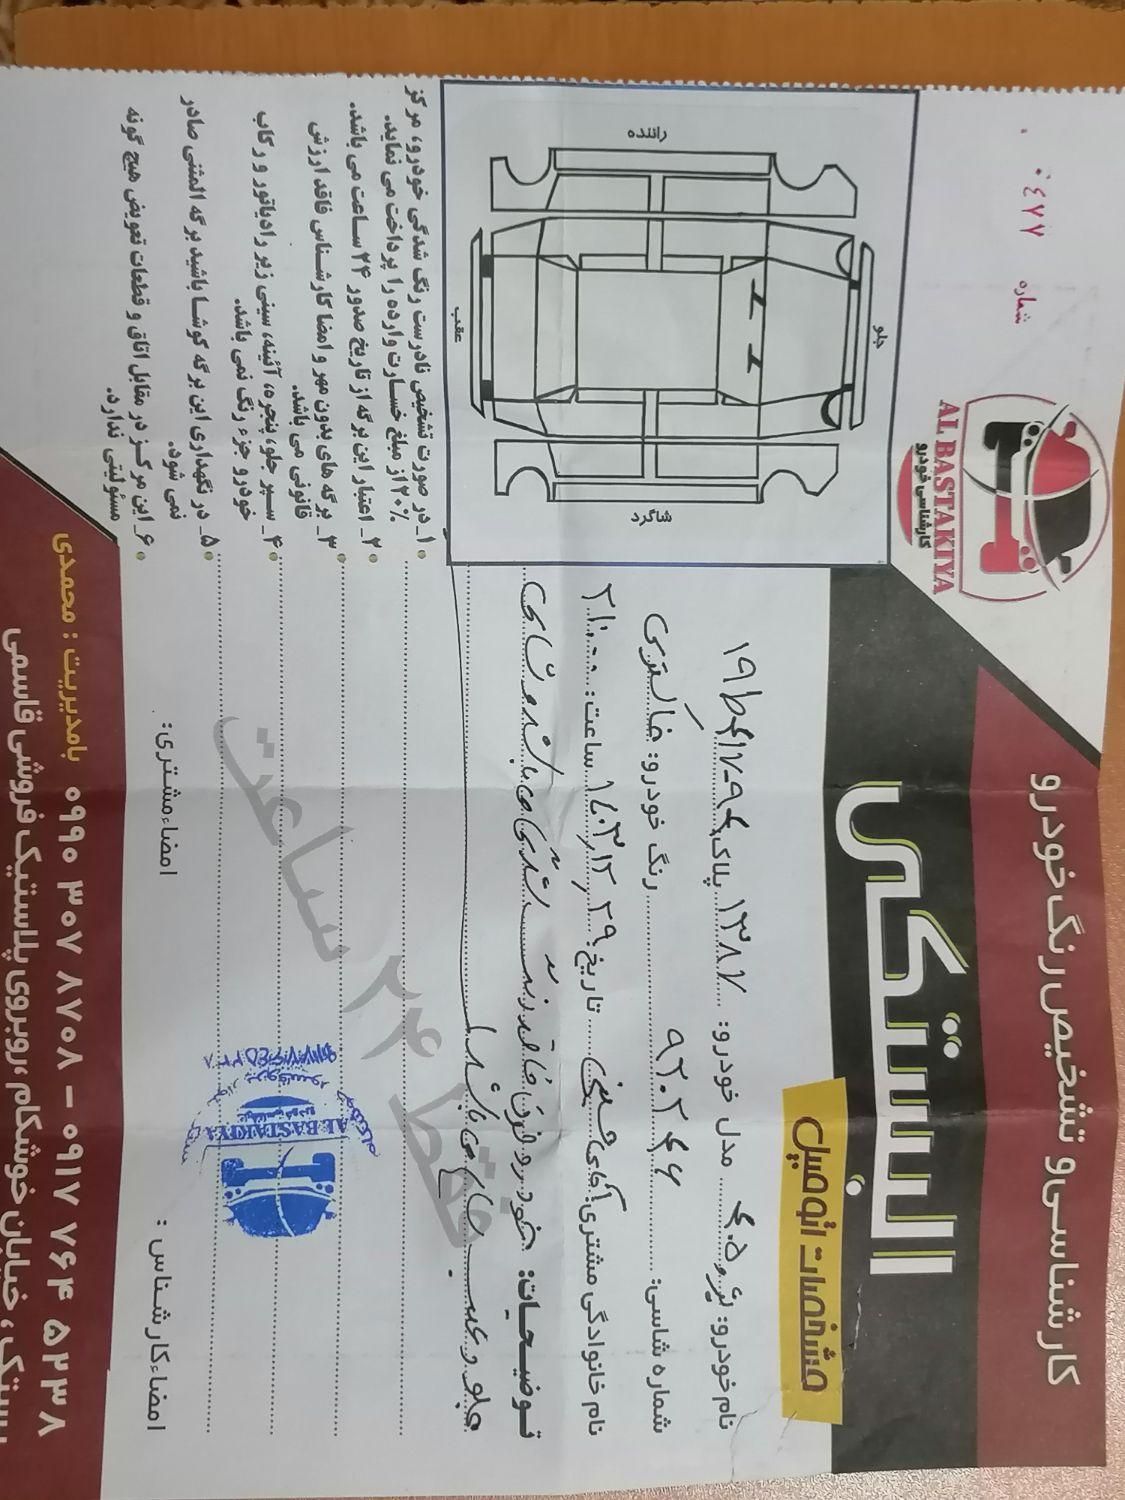 کارشناسی و تشخیص رنگ خودرو
البستکی
شماره ۰۴۷۷
AL BASTAKIYA
کارشناسی خودرو
مشخصات اتومبیل
نام خودرو: پژو ۴۰۵ مدل خودرو: ۱۳۸۷ پلاک
شماره شاسی: ۹۲۰۲۴۶ رنگ خودرو: خاکستری
نام خانوادگی مشتری: آقای تاریخ: ۱۴۰۳,۱۲,۲۹ ساعت:
توضیحات: خودرو فوق فاقد رنگ
جلو و عقب می باشد
جلو
راننده
شاگرد
عقب
۱_ در صورت تشخیص نادرست رنگ شدگی خودرو، مرکز
۲۰٪ از مبلغ خسارت وارده را پرداخت می نماید.
۲_ اعتبار این برگه از تاریخ صدور ۲۴ ساعت می باشد.
۳_ برگه های بدون مهر و امضا کارشناس فاقد ارزش
قانونی می باشد.
۴_ سپر جلو، پنجره، آئینه، سینی زیر رادیاتور و رکاب
خودرو جزء رنگ نمی باشد.
۵_ در نگهداری این برگه کوشا باشید برگه المثنی صادر
نمی شود.
۶_ این مرکز در مقابل اتاق و قطعات تعویض هیچ گونه
مسئولیتی ندارد.
فقط ۲۴ ساعت
AL BASTAKIYA
امضاء کارشناس :
امضاء مشتری:
بامدیریت : محمدی ۰۹۹۰ ۳۰۷ ۸۷۰۸ – ۰۹۱۷ ۷۶۴ ۵۲۳۸
خیابان خوشکام، روبروی پلاستیک فروشی قاسمی